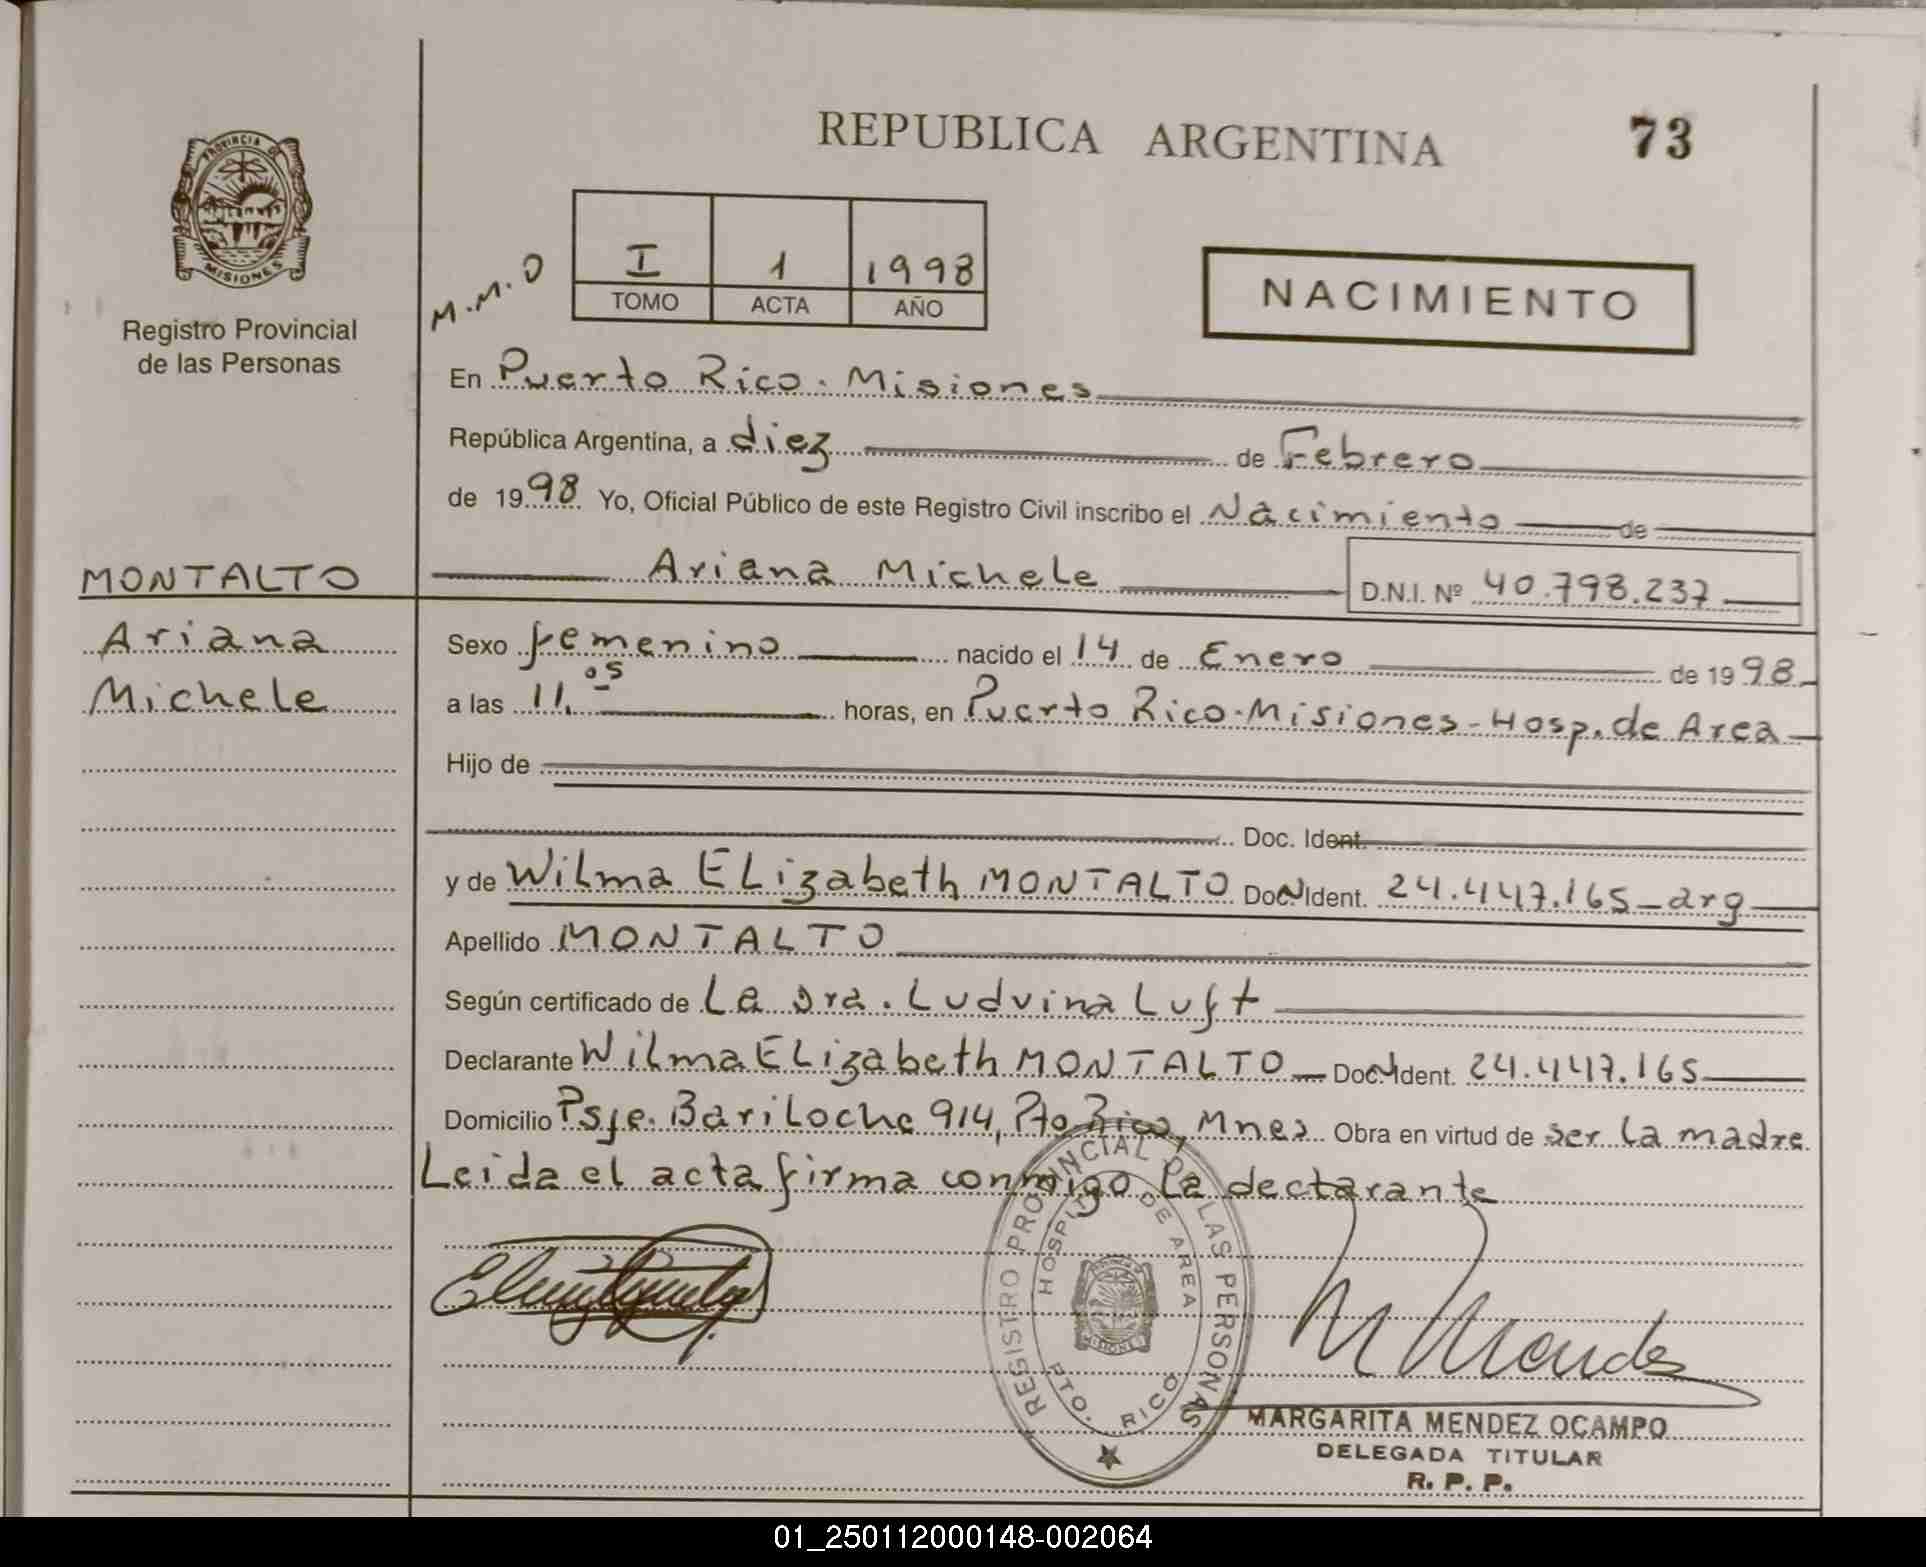 REPUBLICA ARGENTINA
73
PROVINCIA DE
MISIONES
Registro Provincial
de las Personas
M.M.O
I 1 1998
TOMO ACTA AÑO
NACIMIENTO
En Puerto Rico. Misiones
República Argentina, a diez de Febrero
de 1998 Yo, Oficial Público de este Registro Civil inscribo el Nacimiento de
MONTALTO
Ariana Michele D.N.I. Nº 40.798.237
Ariana
Michele
Sexo femenino nacido el 14 de Enero de 1998
a las 11.05 horas, en Puerto Rico-Misiones-Hosp. de Area
Hijo de
Doc. Ident.
y de Wilma ELizabeth MONTALTO Doc. N Ident. 24.447.165 arg
Apellido MONTALTO
Según certificado de La Dra. Ludvina Luft
Declarante Wilma ELizabeth MONTALTO Doc. N Ident. 24.447.165
Domicilio Psje. Bariloche 914, Pto Rico, Mnes Obra en virtud de ser la madre
Leida el acta firma conmigo la declarante
REGISTRO PROVINCIAL DE LAS PERSONAS
HOSPITAL DE AREA
PTO. RICO
M Mendez
MARGARITA MENDEZ OCAMPO
DELEGADA TITULAR
R. P. P.
01_250112000148-002064